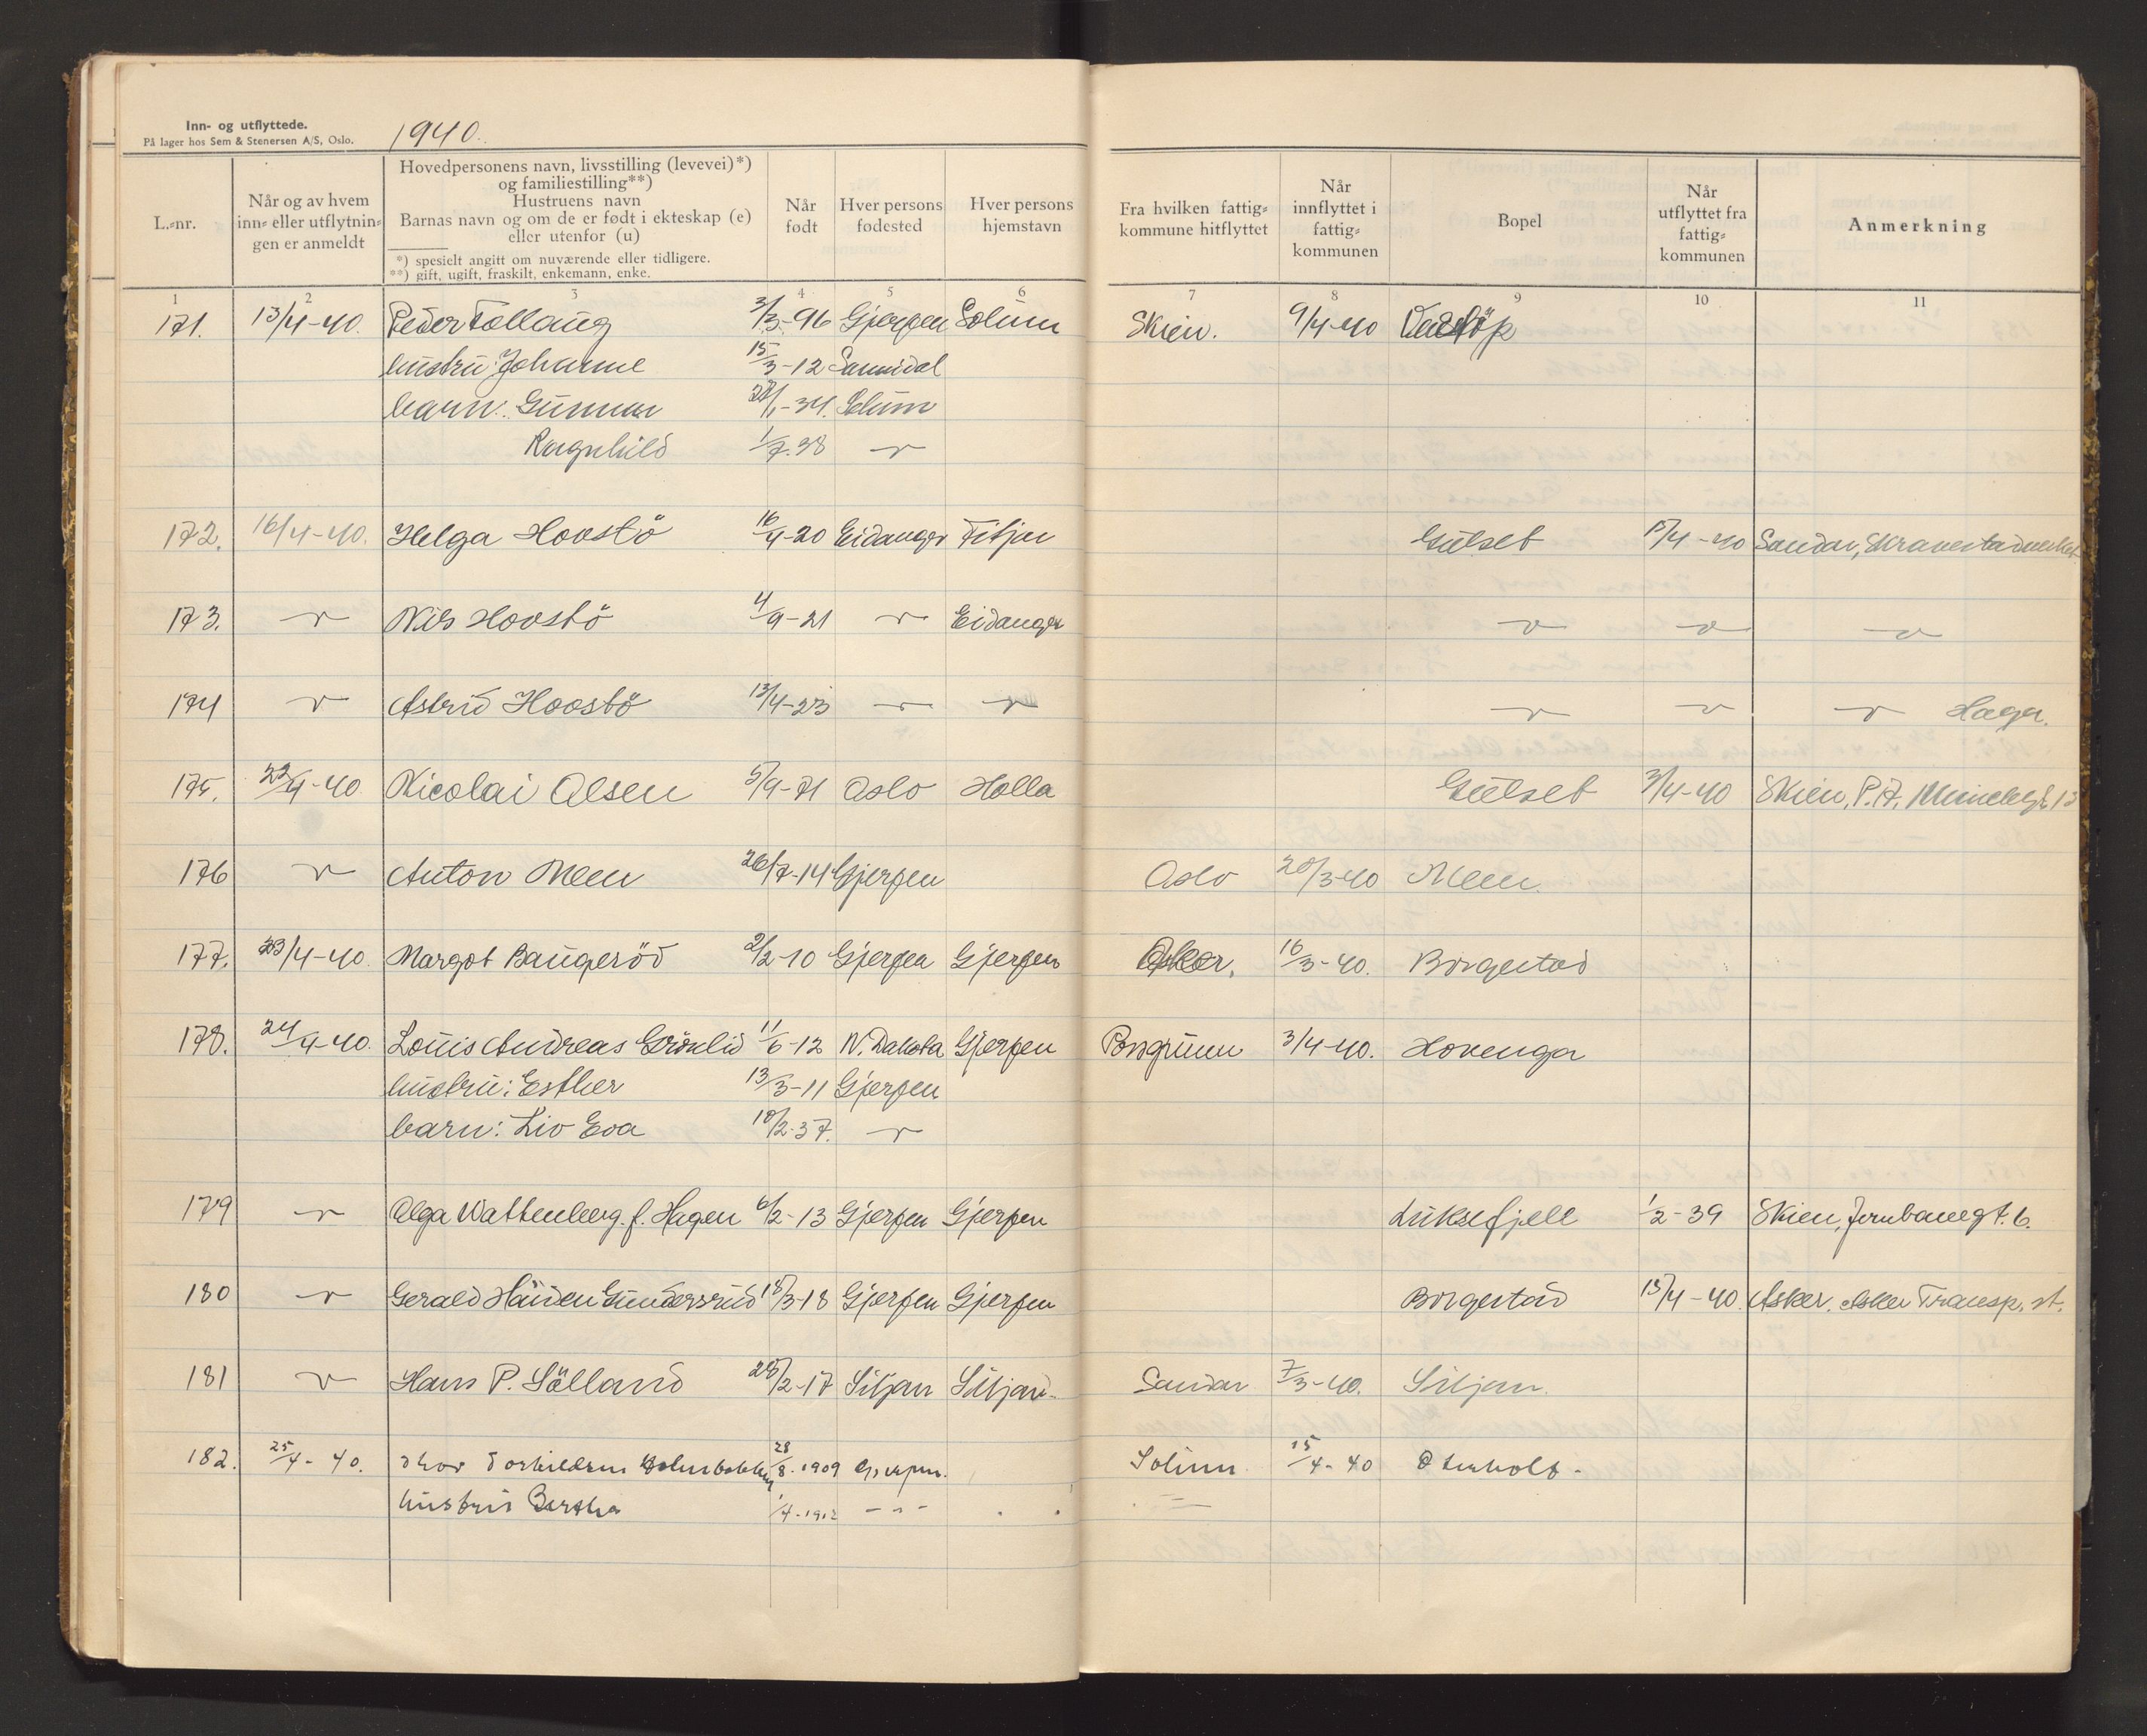 Inn- og utflyttede.
På lager hos Sem & Stenersen A/S, Oslo.
1940.
L.-nr.
Når og av hvem inn- eller utflytningen er anmeldt
Hovedpersonens navn, livsstilling (levevei)*) og familiestilling**) Hustruens navn Barnas navn og om de er født i ekteskap (e) eller utenfor (u)
*) spesielt angitt om nuværende eller tidligere.
**) gift, ugift, fraskilt, enkemann, enke.
Når født
Hver persons fødested
Hver persons hjemstavn
Fra hvilken fattigkommune hitflyttet
Når innflyttet i fattigkommunen
Bopel
Når utflyttet fra fattigkommunen
Anmerkning
1 2 3 4 5 6 7 8 9 10 11
171. 13/4-40. Peder Follaug 3/3-96 Gjerpen Solum Skien. 9/4-40
hustru: Johanne 15/3-12 Sannidal
barn: Gunnar /1-34. Solum
Ragnhild 1/7.38 -"-
172. 16/4-40. Helga Hovstö 16/4-20 Eidanger Fitjar Gulset 15/4-40 Sandar,
173. -"- Nils Hovstö 4/9-21 -"- Eidanger -"- -"- -"-
174 -"- Astrid Hovstö 13/4-23 -"- -"- -"- -"- -"- Haga.
175. 22/4-40 Nicolai Olsen 5/9-71 Oslo Holla Gulset 3/4-40 Skien, P.A. 13
176 -"- Anton Meen 26/7-14 Gjerpen Oslo 20/3-40 Meen.
177. 23/4-40. Margot Baugeröd 2/2-10 Gjerpen Gjerpen Asker. 16/3-40. Borgestad
178. 24/4-40. Louis Andreas Grönlid 11/6-12 N. Dakota Gjerpen Porsgrunn 3/4-40. Hovenga
hustru: Esther 13/3-11 Gjerpen
barn: Liv Eva 18/2-37. -"-
179 -"- Olga Wattenberg f. Hagen 6/2-13 Gjerpen Gjerpen Luksefjell 1/2-39 Skien, Jernbanegt. 6.
180 -"- Gerald Gundersrud 18/3-18 Gjerpen Gjerpen Borgestad 13/4-40. Asker. Asker Transp. st.
181 -"- Hans P. Sölland 28/2-17 Siljan Siljan Sandar 7/3-40. Siljan.
182. 25/4-40. Thor 28/8-1909 Gjerpen. Solum 15/4-40
hustru Bertha 1/4-1912 -"- -"-